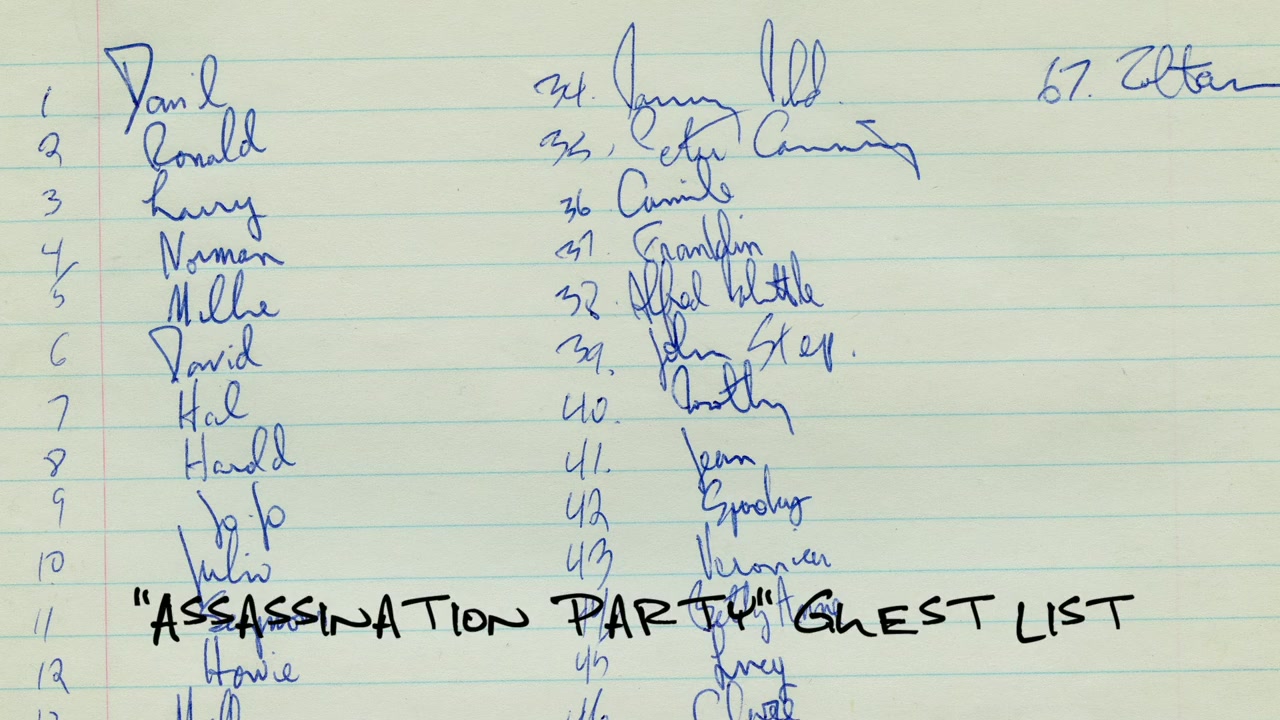 1 Danil
2 Ronald
3 Larry
4 Norman
5 Millie
6 David
7 Hal
8 Harold
9 Jo-Jo
10 Julio
11
12 Howie
34.
35. Peter Canning
36 Camile
37. Franklin
38. Alfred
39. John Step.
40. Dorothy
41. Jean
42 Spooky
43 Veronica
Betty Anne
45 Lucy
46
67. Zoltan
"ASSASSINATION PARTY" GUEST LIST